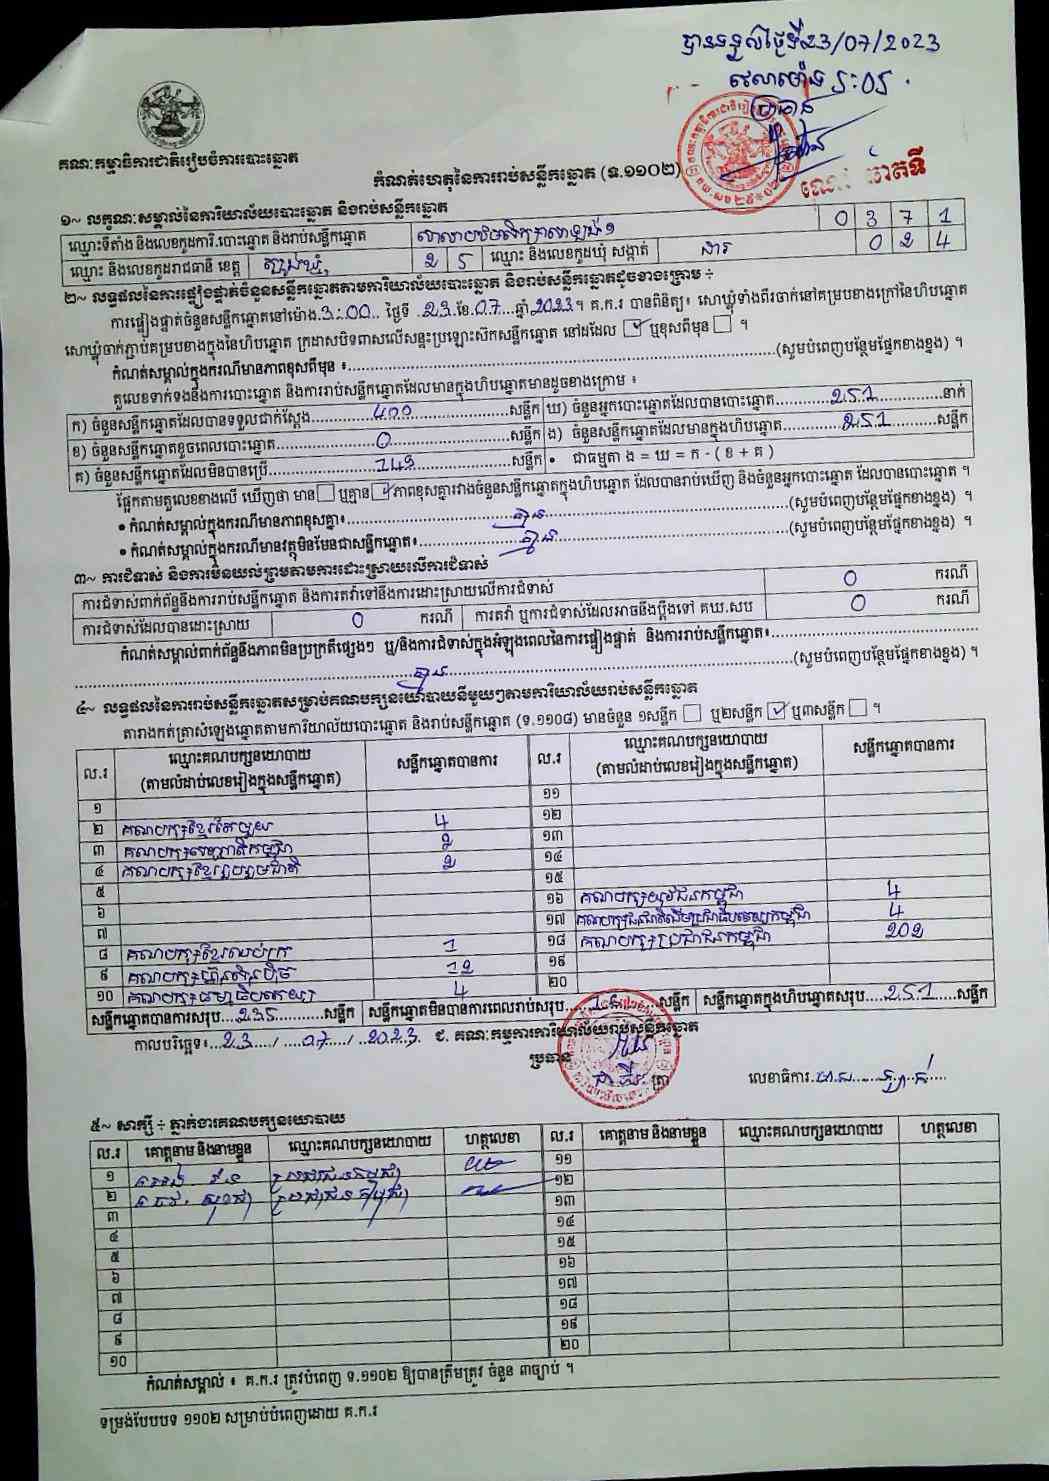 បានទទួលថ្ងៃទី23/07/2023
វេលាម៉ោង 5:05
ប្រធាន
គណៈកម្មាធិការជាតិរៀបចំការបោះឆ្នោត
កំណត់ហេតុនៃការរាប់សន្លឹកឆ្នោត (ទ.១១០២)
១~ លក្ខណៈសម្គាល់នៃការិយាល័យបោះឆ្នោត និងរាប់សន្លឹកឆ្នោត
ឈ្មោះទីតាំង និងលេខកូដការិ.បោះឆ្នោត និងរាប់សន្លឹកឆ្នោត 0 3 7 1
ឈ្មោះ និងលេខកូដរាជធានី ខេត្ត ត្បូងឃ្មុំ 2 5 ឈ្មោះ និងលេខកូដឃុំ សង្កាត់ ជារ 0 2 4
២~ លទ្ធផលនៃការផ្ទៀងផ្ទាត់ចំនួនសន្លឹកឆ្នោតតាមការិយាល័យបោះឆ្នោត និងរាប់សន្លឹកឆ្នោតដូចខាងក្រោម ÷
ការផ្ទៀងផ្ទាត់ចំនួនសន្លឹកឆ្នោតនៅម៉ោង.3:00.. ថ្ងៃទី .23.ខែ.07....ឆ្នាំ.2023។ គ.ក.រ បានពិនិត្យ៖ សោឃ្លុំទាំងពីរចាក់នៅគម្របខាងក្រៅនៃហិបឆ្នោត
សោឃ្លុំចាក់ភ្ជាប់គម្របខាងក្នុងនៃហិបឆ្នោត ក្រដាសបិទពាសលើសន្ទះប្រឡោះស៊កសន្លឹកឆ្នោត នៅដដែល ☑ ឬខុសពីមុន ☐ ។
កំណត់សម្គាល់ក្នុងករណីមានភាពខុសពីមុន ៖....(សូមបំពេញបន្ថែមផ្នែកខាងខ្នង) ។
តួលេខទាក់ទងនឹងការបោះឆ្នោត និងការរាប់សន្លឹកឆ្នោតដែលមានក្នុងហិបឆ្នោតមានដូចខាងក្រោម ៖
ក) ចំនួនសន្លឹកឆ្នោតដែលបានទទួលជាក់ស្តែង....400....សន្លឹក ឃ) ចំនួនអ្នកបោះឆ្នោតដែលបានបោះឆ្នោត....251....នាក់
ខ) ចំនួនសន្លឹកឆ្នោតខូចពេលបោះឆ្នោត....0....សន្លឹក ង) ចំនួនសន្លឹកឆ្នោតដែលមានក្នុងហិបឆ្នោត....251....សន្លឹក
គ) ចំនួនសន្លឹកឆ្នោតដែលមិនបានប្រើ....149....សន្លឹក • ជាធម្មតា ង = ឃ = ក - ( ខ + គ )
ផ្អែកតាមតួលេខខាងលើ ឃើញថា មាន ☐ ឬគ្មាន ☑ ភាពខុសគ្នារវាងចំនួនសន្លឹកឆ្នោតក្នុងហិបឆ្នោត ដែលបានរាប់ឃើញ និងចំនួនអ្នកបោះឆ្នោត ដែលបានបោះឆ្នោត ។
• កំណត់សម្គាល់ក្នុងករណីមានភាពខុសគ្នា៖....គ្មាន....(សូមបំពេញបន្ថែមផ្នែកខាងខ្នង) ។
• កំណត់សម្គាល់ក្នុងករណីមានវត្ថុមិនមែនជាសន្លឹកឆ្នោត៖....គ្មាន....(សូមបំពេញបន្ថែមផ្នែកខាងខ្នង) ។
៣~ ការជំទាស់ និងការមិនយល់ព្រមតាមការដោះស្រាយលើការជំទាស់
ការជំទាស់ពាក់ព័ន្ធនឹងការរាប់សន្លឹកឆ្នោត និងការតវ៉ាទៅនឹងការដោះស្រាយលើការជំទាស់ 0 ករណី
ការជំទាស់ដែលបានដោះស្រាយ 0 ករណី ការតវ៉ា ឬការជំទាស់ដែលអាចនឹងប្តឹងទៅ គឃ.សប 0 ករណី
កំណត់សម្គាល់ពាក់ព័ន្ធនឹងភាពមិនប្រក្រតីផ្សេងៗ ឬ/និងការជំទាស់ក្នុងអំឡុងពេលនៃការផ្ទៀងផ្ទាត់ និងការរាប់សន្លឹកឆ្នោត៖....
....គ្មាន....(សូមបំពេញបន្ថែមផ្នែកខាងខ្នង) ។
៤~ លទ្ធផលនៃការរាប់សន្លឹកឆ្នោតសម្រាប់គណបក្សនយោបាយនីមួយៗតាមការិយាល័យរាប់សន្លឹកឆ្នោត
តារាងកត់ត្រាសំឡេងឆ្នោតតាមការិយាល័យបោះឆ្នោត និងរាប់សន្លឹកឆ្នោត (ទ.១១០៨) មានចំនួន ១សន្លឹក ☐ ឬ២សន្លឹក ☑ ឬ៣សន្លឹក ☐ ។
ល.រ ឈ្មោះគណបក្សនយោបាយ (តាមលំដាប់លេខរៀងក្នុងសន្លឹកឆ្នោត) សន្លឹកឆ្នោតបានការ ល.រ ឈ្មោះគណបក្សនយោបាយ (តាមលំដាប់លេខរៀងក្នុងសន្លឹកឆ្នោត) សន្លឹកឆ្នោតបានការ
១ ១១
២ គណបក្សខ្មែរតែមួយ 4 ១២
៣ គណបក្ស 2 ១៣
៤ គណបក្សខ្មែររួបរួមជាតិ 2 ១៤
៥ ១៥
៦ ១៦ គណបក្សយុវជនកម្ពុជា 4
៧ ១៧ គណបក្សជនជាតិដើមប្រជាធិបតេយ្យកម្ពុជា 4
៨ គណបក្សខ្មែរឈប់ក្រ 1 ១៨ គណបក្សប្រជាជនកម្ពុជា 202
៩ គណបក្សហ៊្វុនស៊ិនប៉ិច 12 ១៩
១០ គណបក្សធម្មាធិបតេយ្យ 4 ២០
សន្លឹកឆ្នោតបានការសរុប....235....សន្លឹក សន្លឹកឆ្នោតមិនបានការពេលរាប់សរុប....16....សន្លឹក សន្លឹកឆ្នោតក្នុងហិបឆ្នោតសរុប....251....សន្លឹក
កាលបរិច្ឆេទ៖...23..../....07..../..2023. ជ. គណៈកម្មការការិយាល័យរាប់សន្លឹកឆ្នោត
ប្រធាន
លេខាធិការ
៥~ សាក្សី ÷ ភ្នាក់ងារគណបក្សនយោបាយ
ល.រ គោត្តនាម និងនាមខ្លួន ឈ្មោះគណបក្សនយោបាយ ហត្ថលេខា ល.រ គោត្តនាម និងនាមខ្លួន ឈ្មោះគណបក្សនយោបាយ ហត្ថលេខា
១ ប្រជាជនកម្ពុជា ១១
២ ប្រជាជនកម្ពុជា ១២
៣ ១៣
៤ ១៤
៥ ១៥
៦ ១៦
៧ ១៧
៨ ១៨
៩ ១៩
១០ ២០
កំណត់សម្គាល់ ៖ គ.ក.រ ត្រូវបំពេញ ទ.១១០២ ឱ្យបានត្រឹមត្រូវ ចំនួន ៣ច្បាប់ ។
ទម្រង់បែបបទ ១១០២ សម្រាប់បំពេញដោយ គ.ក.រ